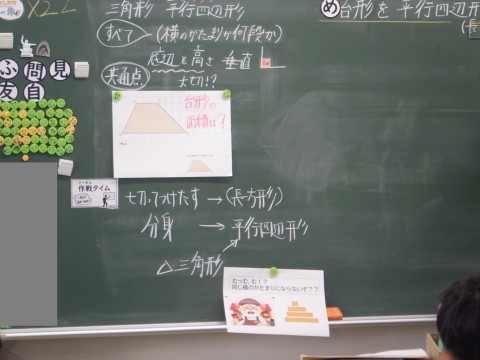 三角形 平行四辺形
め 台形を平行四辺形
すべて (横のかたまりが何段か)
底辺と高さ 垂直
共通点 大切!?
ふ 問 見
友 自
台形の
面積は?
作戦タイム
切ってつけたす → (長方形)
分身 → 平行四辺形
△三角形
むっ、む!?
同じ横のかたまりにならないぞ??